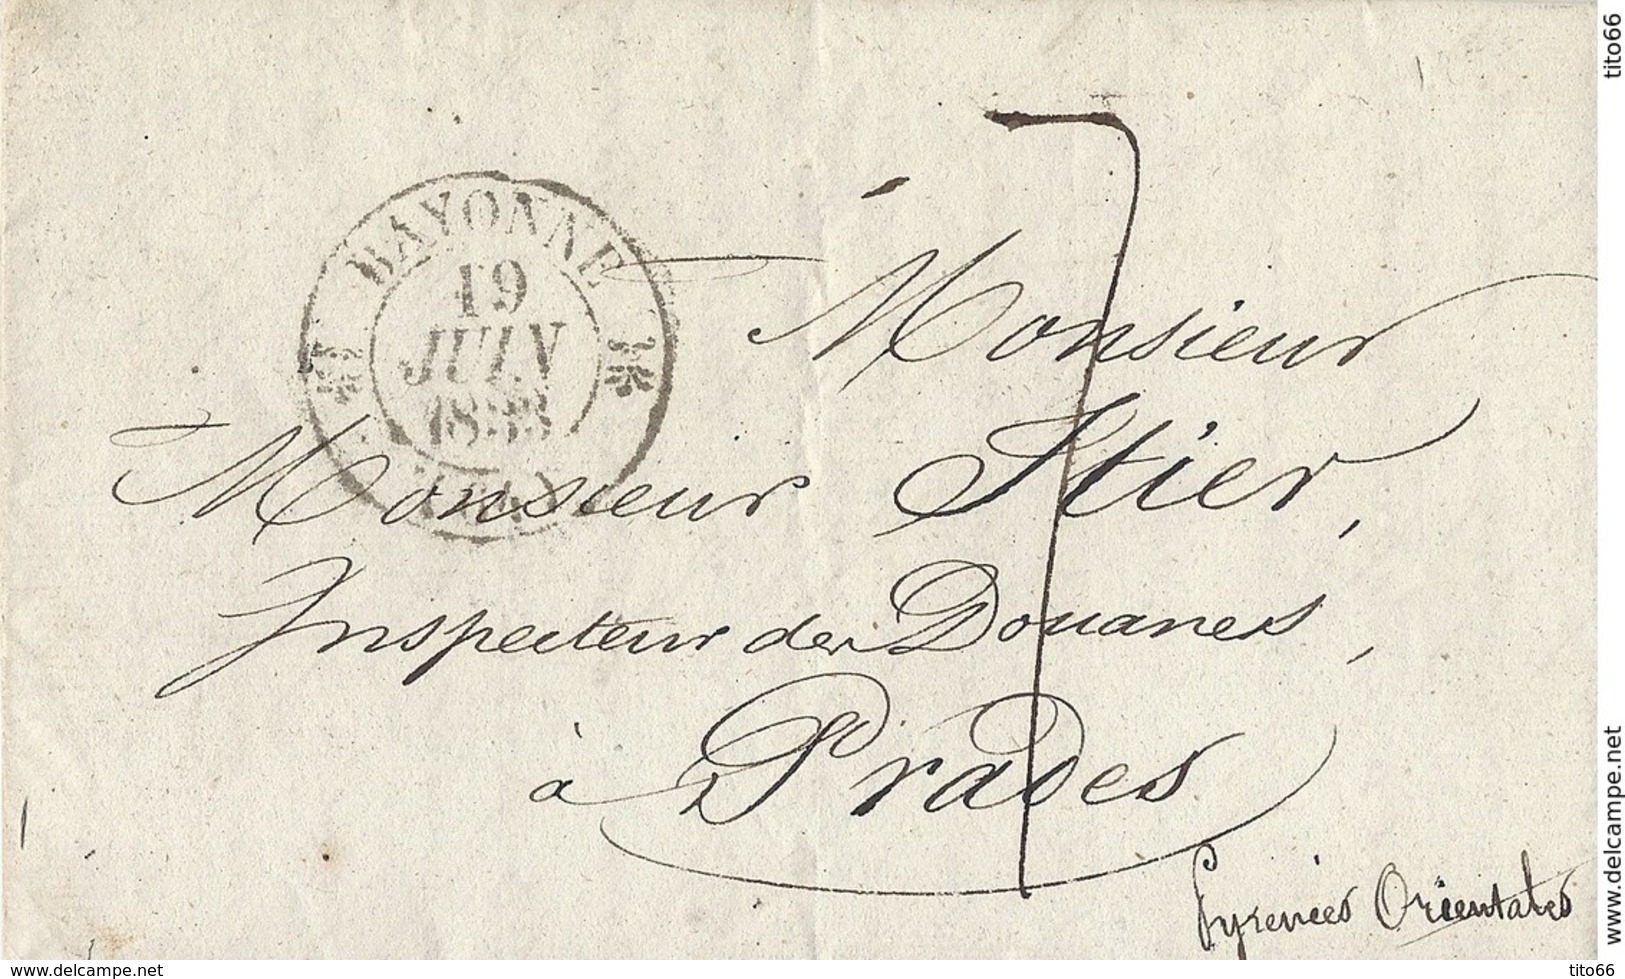 BAYONNE
19
JUIN
1833
7
Monsieur
Monsieur Itier,
Inspecteur des Douanes,
à Prades
Pyrenées Orientales
tito66
www.delcampe.net
www.delcampe.net
tito66